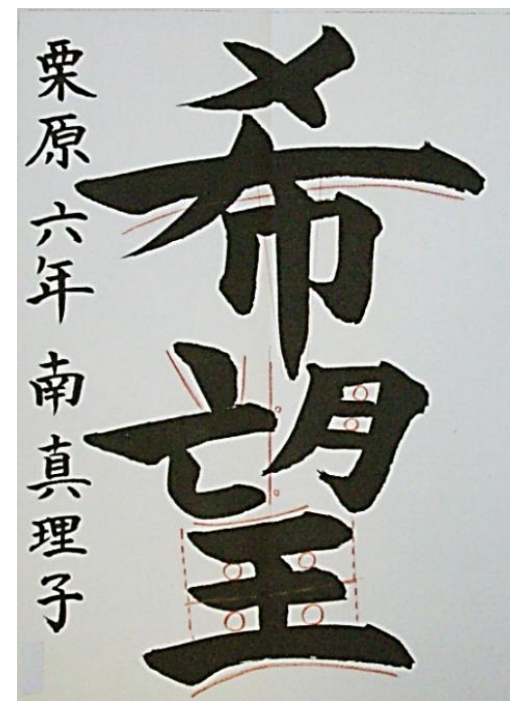 希望
栗原 六年 南 真理子